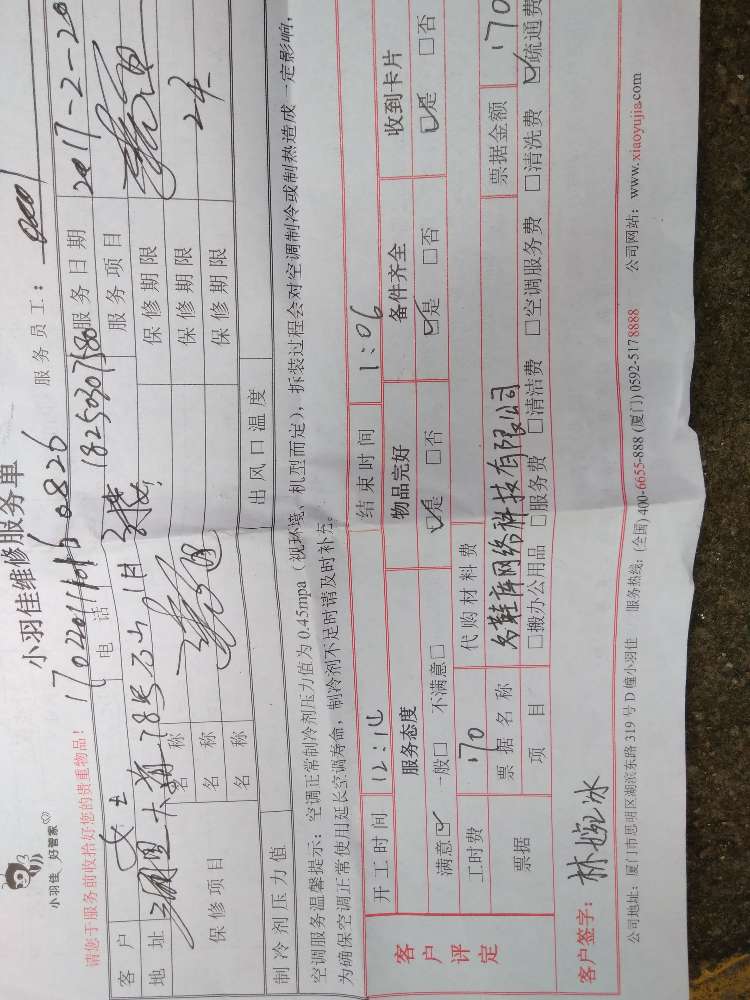 小羽佳 好管家
小羽佳维修服务单
170220111016 0826
服务员工：
请您于服务前收拾好您的贵重物品！
客户 女士 电话 18250307580 服务日期 2017-2-20
地址 服务项目
保修项目 名称 保修期限
名称 保修期限
名称 保修期限
制冷剂压力值 出风口温度
空调服务温馨提示：空调正常制冷剂压力值为 0.45mpa（视环境、机型而定），拆装过程会对空调制冷或制热造成一定影响，
为确保空调正常使用延长空调寿命，制冷剂不足时请及时补充。
客户评定
开工时间 结束时间 1:06
服务态度 物品完好 备件齐全 收到卡片
满意☑ 一般□ 不满意□ ☑是 □否 ☑是 □否 ☑是 □否
工时费 170 代购材料费 票据金额 170
票据 票据名称 多鞋库网络科技有限公司
项目 □搬办公用品 □服务费 □清洁费 □空调服务费 □清洗费 ☑疏通费
客户签字：林婉冰
公司地址：厦门市思明区湖滨东路 319 号 D 幢小羽佳 服务热线：(全国) 400-6655-888 (厦门) 0592-5178888 公司网站：www.xiaoyujia.com